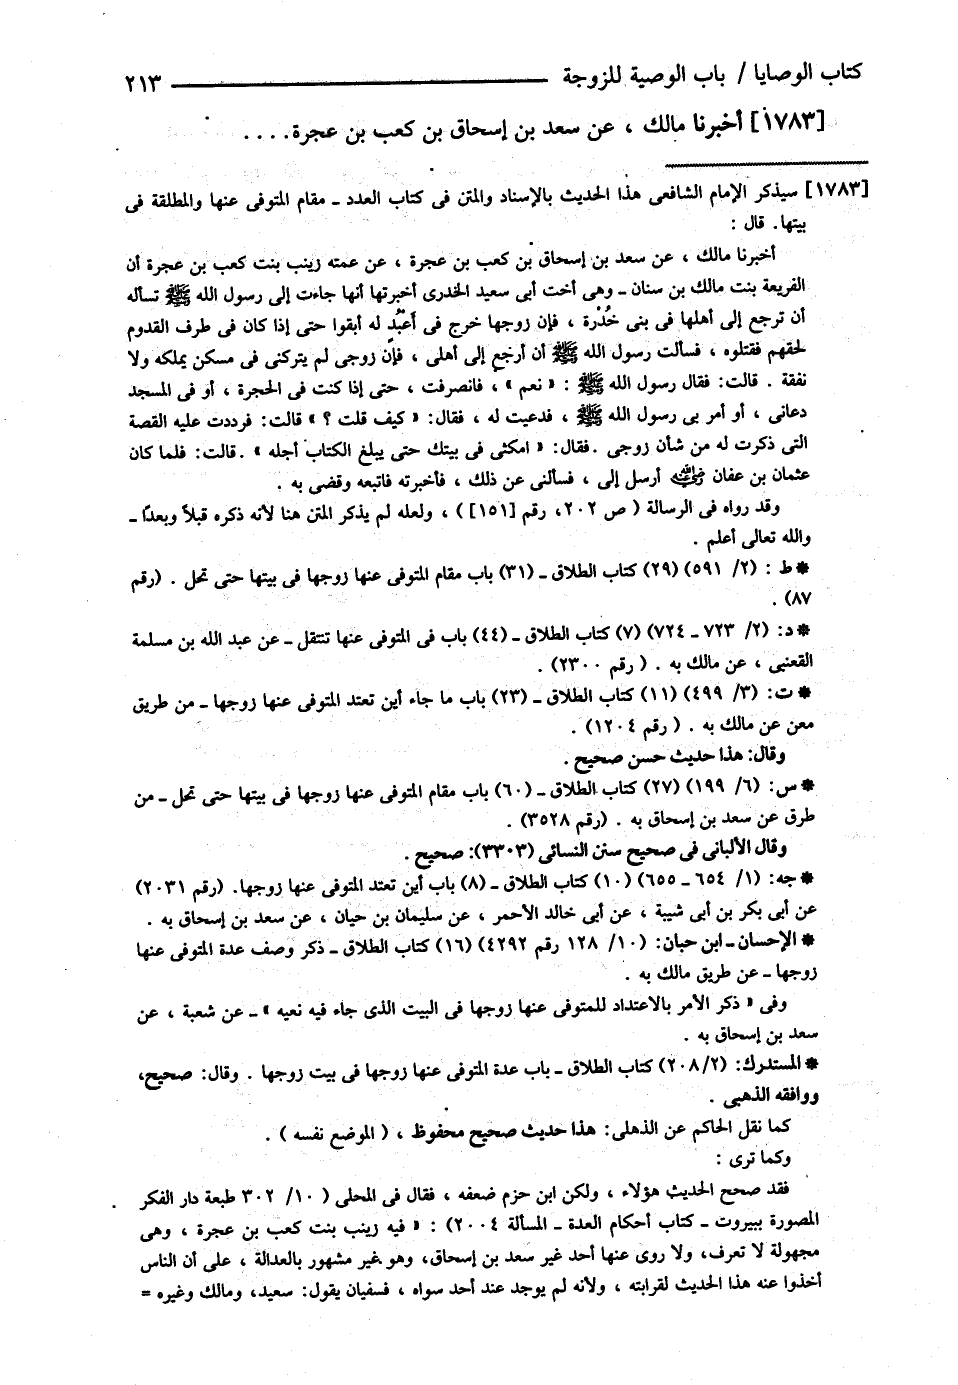 كتاب الوصايا / باب الوصية للزوجة ــــــــ ٢١٣
[١٧٨٣] أخبرنا مالك ، عن سعد بن إسحاق بن كعب بن عجرة . . . .
[١٧٨٣] سيذكر الإمام الشافعى هذا الحديث بالإسناد والمتن فى كتاب العدد ـ مقام المتوفى عنها والمطلقة فى
بيتها. قال :
أخبرنا مالك ، عن سعد بن إسحاق بن كعب بن عجرة ، عن عمته زينب بنت كعب بن عجرة أن
الفريعة بنت مالك بن سنان ـ وهى أخت أبى سعيد الخدرى أخبرتها أنها جاءت إلى رسول الله ﷺ تسأله
أن ترجع إلى أهلها فى بنى خُدْرة ، فإن زوجها خرج فى أَعْبُدٍ له أبقوا حتى إذا كان فى طرف القدوم
لحقهم فقتلوه ، فسألت رسول الله ﷺ أن أرجع إلى أهلى ، فإن زوجى لم يتركنى فى مسكن يملكه ولا
نفقة . قالت: فقال رسول الله ﷺ : « نعم » ، فانصرفت ، حتى إذا كنت فى الحجرة ، أو فى المسجد
دعانى ، أو أمر بى رسول الله ﷺ ، فدعيت له ، فقال: « كيف قلت ؟ » قالت: فرددت عليه القصة
التى ذكرت له من شأن زوجى . فقال: « امكثى فى بيتك حتى يبلغ الكتاب أجله » . قالت: فلما كان
عثمان بن عفان رضي الله عنه أرسل إلى ، فسألنى عن ذلك ، فأخبرته فاتبعه وقضى به .
وقد رواه فى الرسالة ( ص ٢٠٢، رقم [١٥١] ) ، ولعله لم يذكر المتن هنا لأنه ذكره قبلاً وبعدًا ـ
والله تعالى أعلم .
* ط : (٢/ ٥٩١) (٢٩) كتاب الطلاق ـ (٣١) باب مقام المتوفى عنها زوجها فى بيتها حتى تحل . (رقم
٨٧) .
* د: (٢/ ٧٢٣ ـ ٧٢٤) (٧) كتاب الطلاق ـ (٤٤) باب فى المتوفى عنها تنتقل ـ عن عبد الله بن مسلمة
القعنبى ، عن مالك به . ( رقم ٢٣٠٠) .
* ت: (٣/ ٤٩٩) (١١) كتاب الطلاق ـ (٢٣) باب ما جاء أين تعتد المتوفى عنها زوجها ـ من طريق
معن عن مالك به . ( رقم ١٢٠٤) .
وقال: هذا حديث حسن صحيح .
* س: (٦/ ١٩٩) (٢٧) كتاب الطلاق ـ (٦٠) باب مقام المتوفى عنها زوجها فى بيتها حتى تحل ـ من
طرق عن سعد بن إسحاق به . (رقم ٣٥٢٨) .
وقال الألبانى فى صحيح سنن النسائى (٣٣٠٣): صحيح .
* جه: (١/ ٦٥٤ ـ ٦٥٥) (١٠) كتاب الطلاق ـ (٨) باب أين تعتد المتوفى عنها زوجها. (رقم ٢٠٣١)
عن أبى بكر بن أبى شيبة ، عن أبى خالد الأحمر ، عن سليمان بن حيان ، عن سعد بن إسحاق به .
* الإحسان ـ ابن حبان: (١٠/ ١٢٨ رقم ٤٢٩٢) (١٦) كتاب الطلاق ـ ذكر وصف عدة المتوفى عنها
زوجها ـ عن طريق مالك به .
وفى « ذكر الأمر بالاعتداد للمتوفى عنها زوجها فى البيت الذى جاء فيه نعيه » ـ عن شعبة ، عن
سعد بن إسحاق به .
* المستدرك: (٢/٢٠٨) كتاب الطلاق ـ باب عدة المتوفى عنها زوجها فى بيت زوجها . وقال: صحيح،
ووافقه الذهبى .
كما نقل الحاكم عن الذهلى: هذا حديث صحيح محفوظ ، ( الموضع نفسه ) .
وكما ترى :
فقد صحح الحديث هؤلاء ، ولكن ابن حزم ضعفه ، فقال فى المحلى ( ١٠/ ٣٠٢ طبعة دار الفكر
المصورة ببيروت ـ كتاب أحكام العدة ـ المسألة ٢٠٠٤) : « فيه زينب بنت كعب بن عجرة ، وهى
مجهولة لا تعرف، ولا روى عنها أحد غير سعد بن إسحاق، وهو غير مشهور بالعدالة ، على أن الناس
أخذوا عنه هذا الحديث لقرابته ، ولأنه لم يوجد عند أحد سواه ، فسفيان يقول: سعيد، ومالك وغيره =